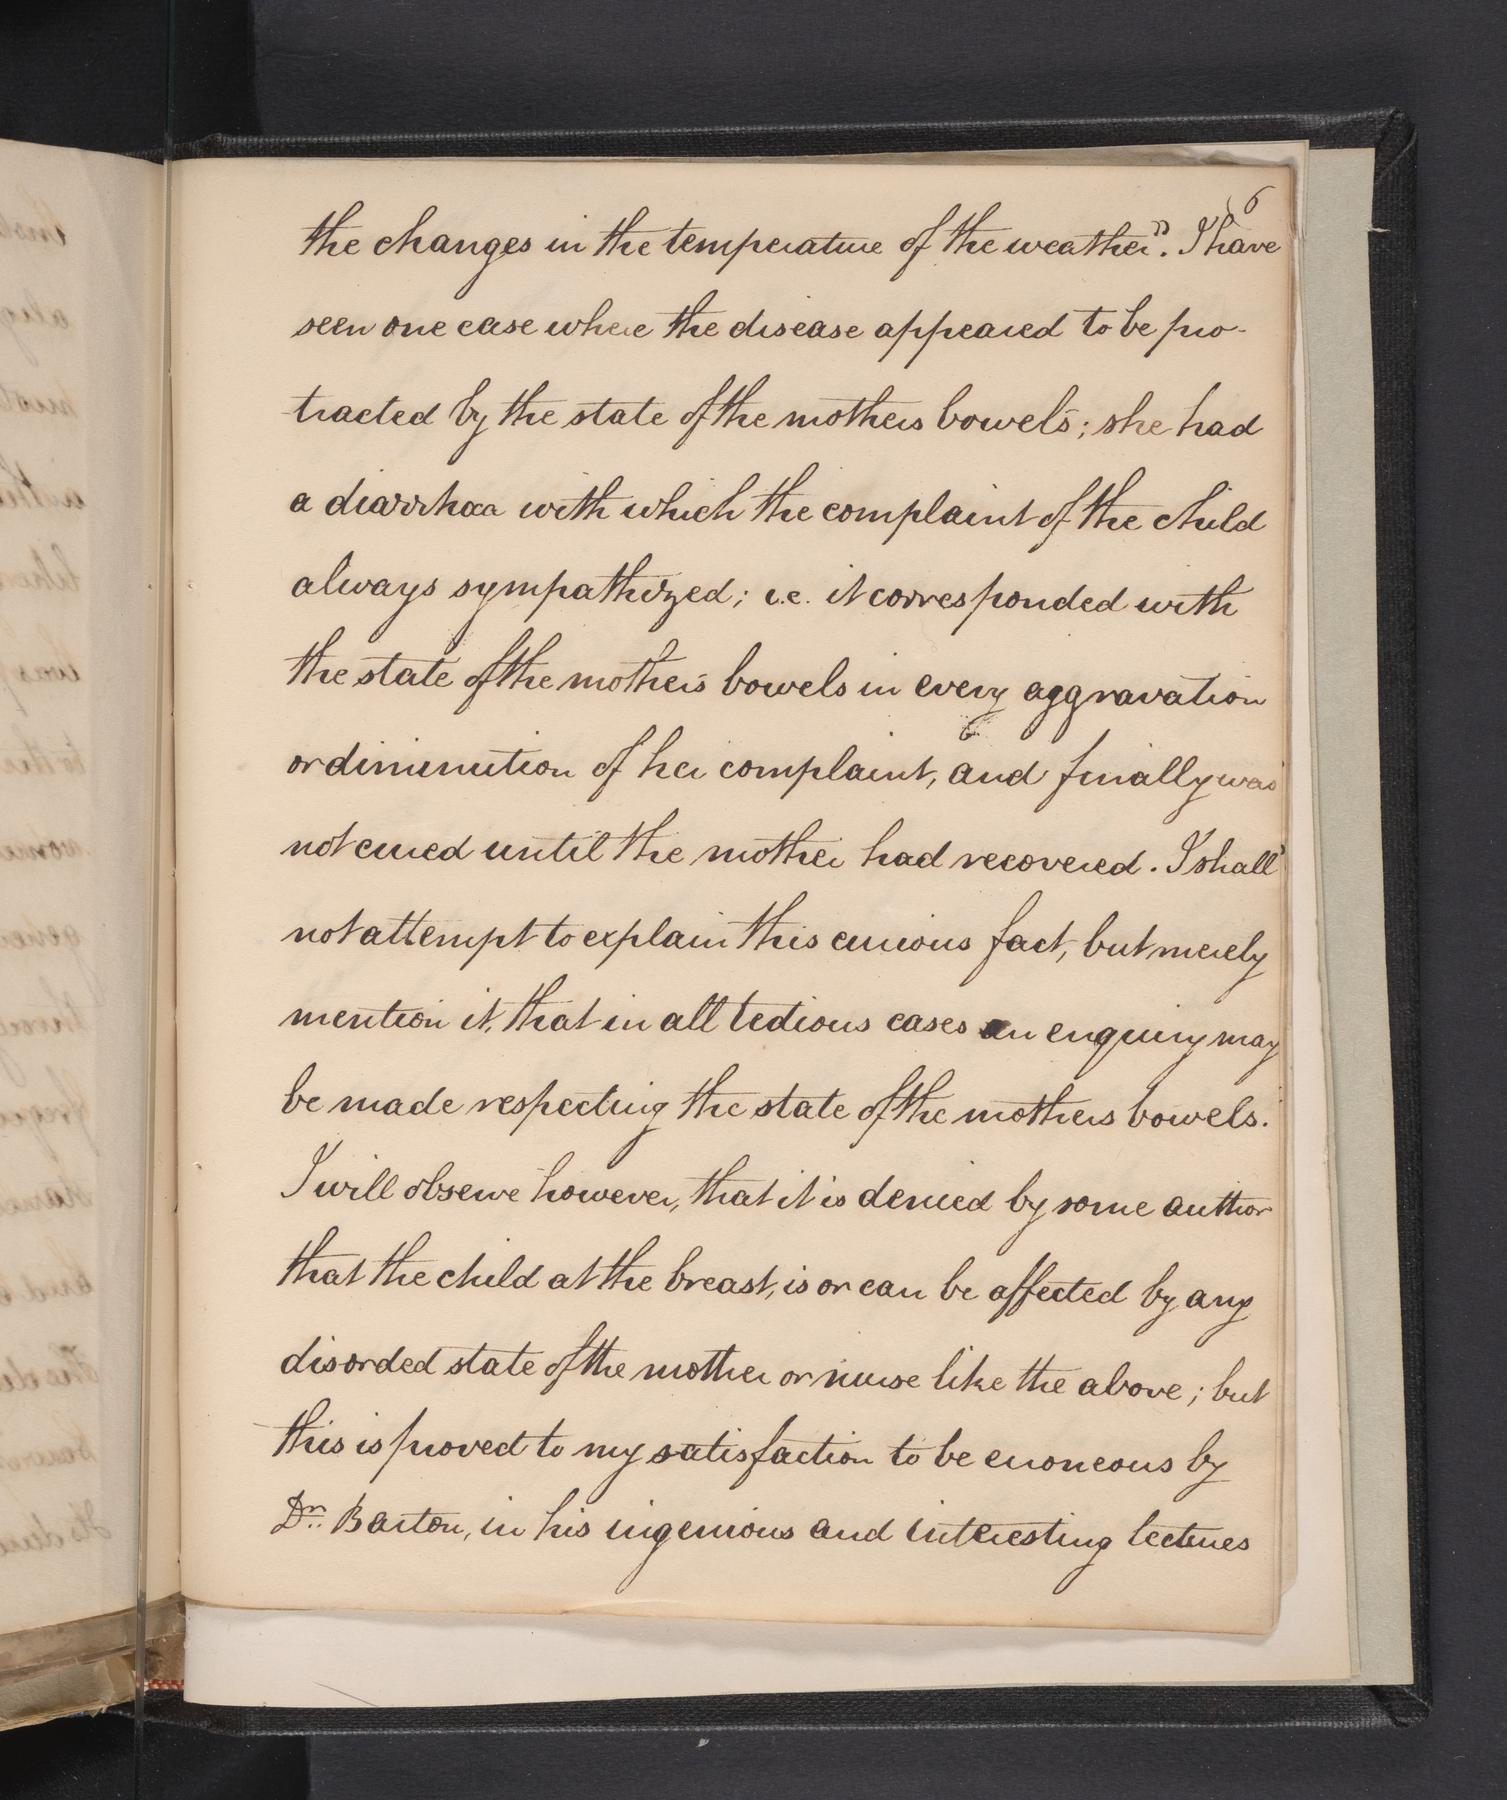 6
the changes in the temperature of the weather". I have
seen one case where the disease appeared to be pro-
tracted by the state of the mothers bowels; she had
a diarrhœa with which the complaint of the child
always sympathized; i.e. it corresponded with
the state of the mother's bowels in every aggravation
or diminution of her complaint, and finally was
not cured until the mother had recovered. I shall
not attempt to explain this curious fact, but merely
mention it, that in all tedious cases an enquiry may
be made respecting the state of the mothers bowels.
I will observe however, that it is denied by some author
that the child at the breast, is or can be affected by any
disorded state of the mother or nurse like the above; but
this is proved to my satisfaction to be erroneous by
Dr. Barton, in his ingenious and interesting lectures